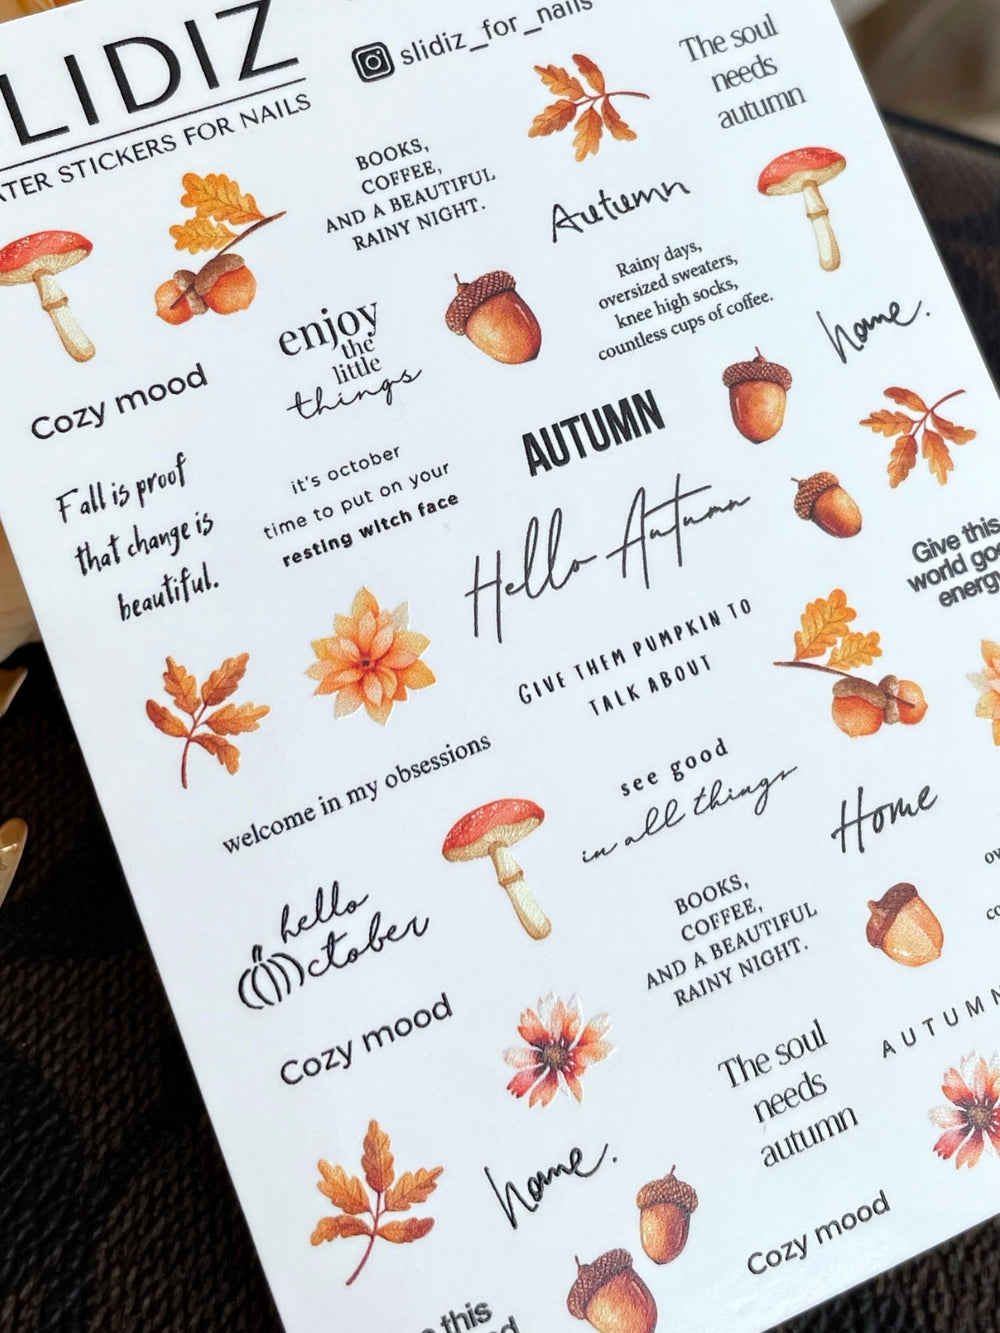 SLIDIZ
WATER STICKERS FOR NAILS
slidiz_for_nails
The soul
needs
autumn
BOOKS,
COFFEE,
AND A BEAUTIFUL
RAINY NIGHT.
Autumn
Rainy days,
oversized sweaters,
knee high socks,
countless cups of coffee.
home.
enjoy
the
little
things
Cozy mood
AUTUMN
Fall is proof
that change is
beautiful.
it's october
time to put on your
resting witch face
Hello Autumn
Give this
world good
energy
GIVE THEM PUMPKIN TO
TALK ABOUT
welcome in my obsessions
see good
in all things
Home
hello
October
BOOKS,
COFFEE,
AND A BEAUTIFUL
RAINY NIGHT.
Cozy mood
AUTUMN
The soul
needs
autumn
home.
Cozy mood
this